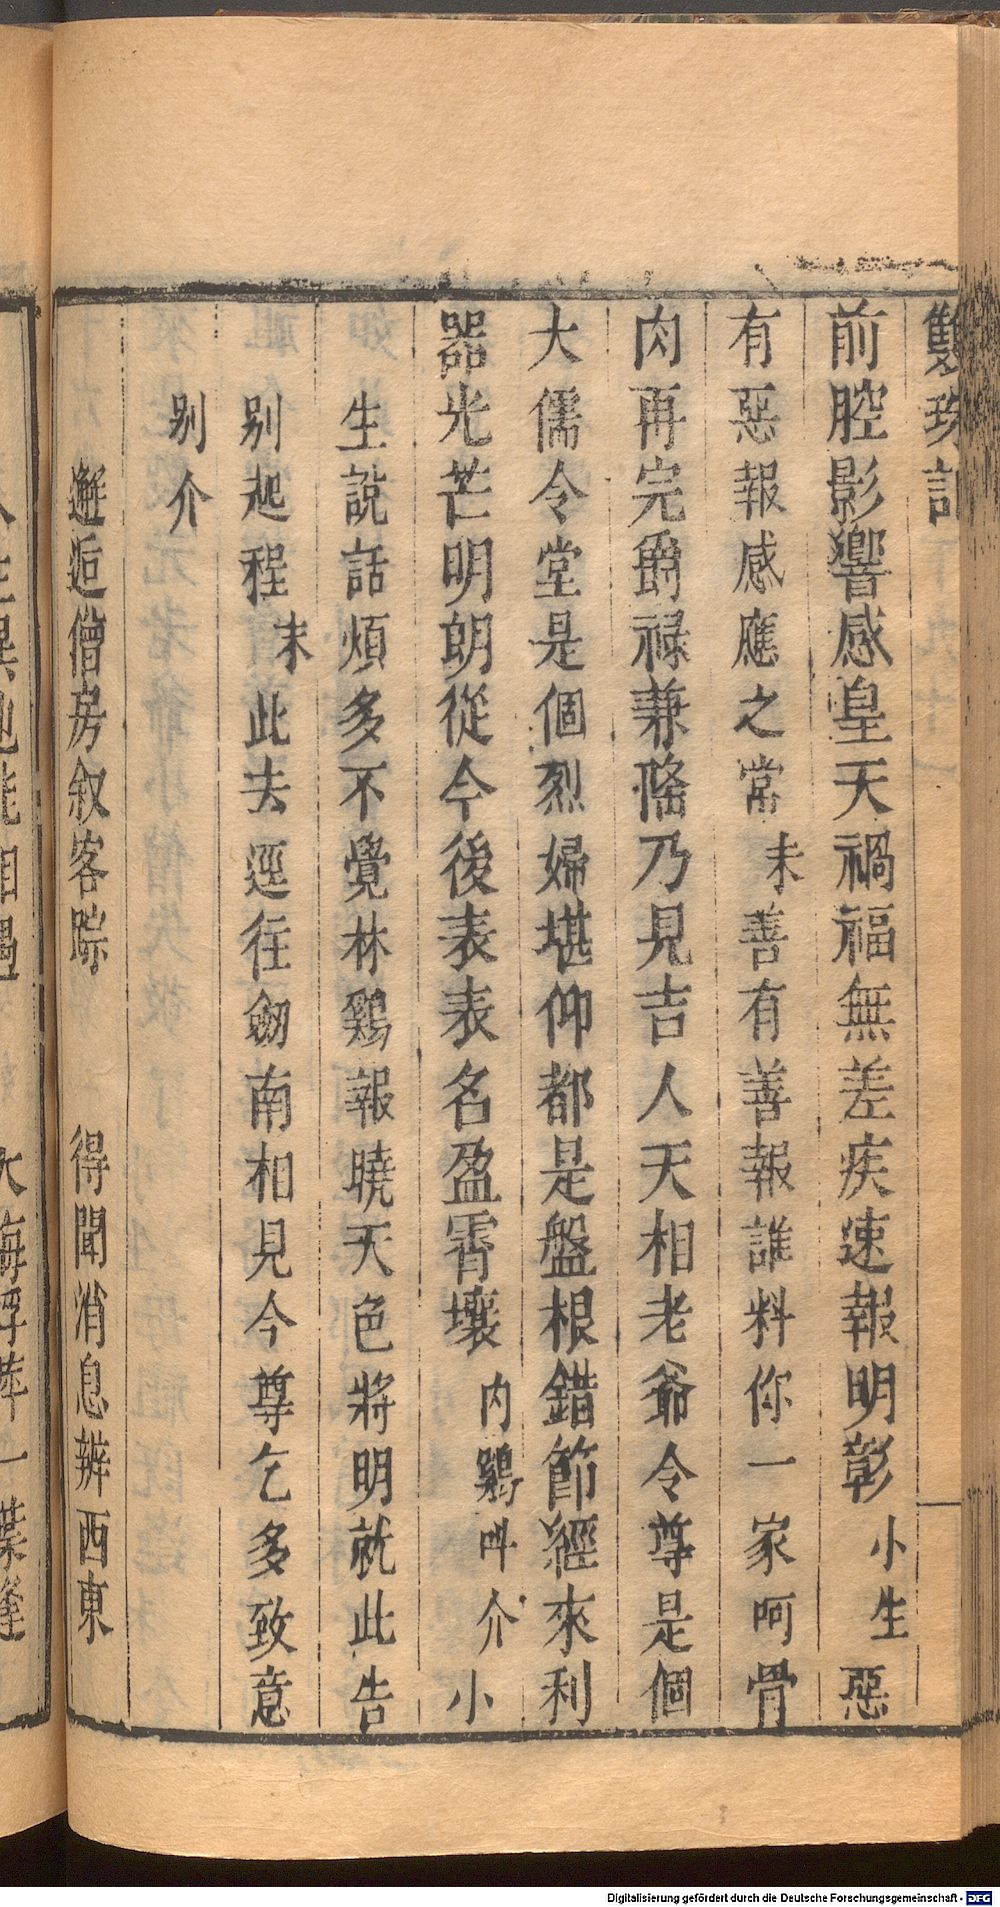 雙珠記
前腔影響感皇天禍福無差疾速報明彰小生惡
有惡報感應之常末善有善報誰料你一家呵骨
肉再完爵祿兼脩乃見吉人天相老爺令尊是個
大儒令堂是個烈婦堪仰都是盤根錯節經來利
器光芒明朗從今後表表名盈霄壤內鷄叫介小
生說話煩多不覺林鷄報曉天色將明就此告
別起程末此去逕往劒南相見令尊乞多致意
別介
邂逅僧房叙客踪　得聞消息辨西東
Digitalisierung gefördert durch die Deutsche Forschungsgemeinschaft - DFG